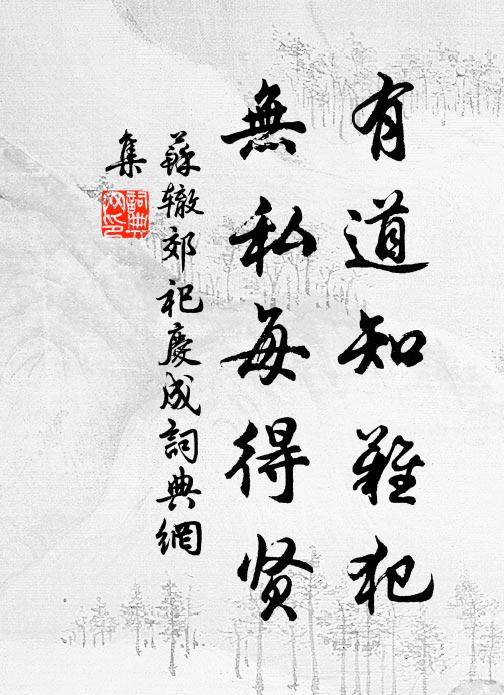 有道知難犯
無私每得贤
蘇辙郊祀慶成詞典網
集
詞典
网印